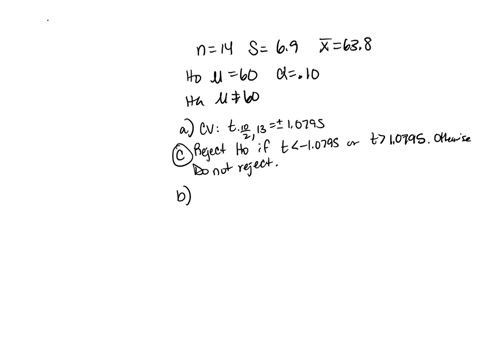 n=14 S= 6.9 x̄=63.8
Ho μ=60 α=.10
Ha μ≠60
a) CV: t.10/2, 13 = ± 1.0795
C Reject Ho if t<-1.0795 or t>1.0795. Otherwise
Do not reject.
b)